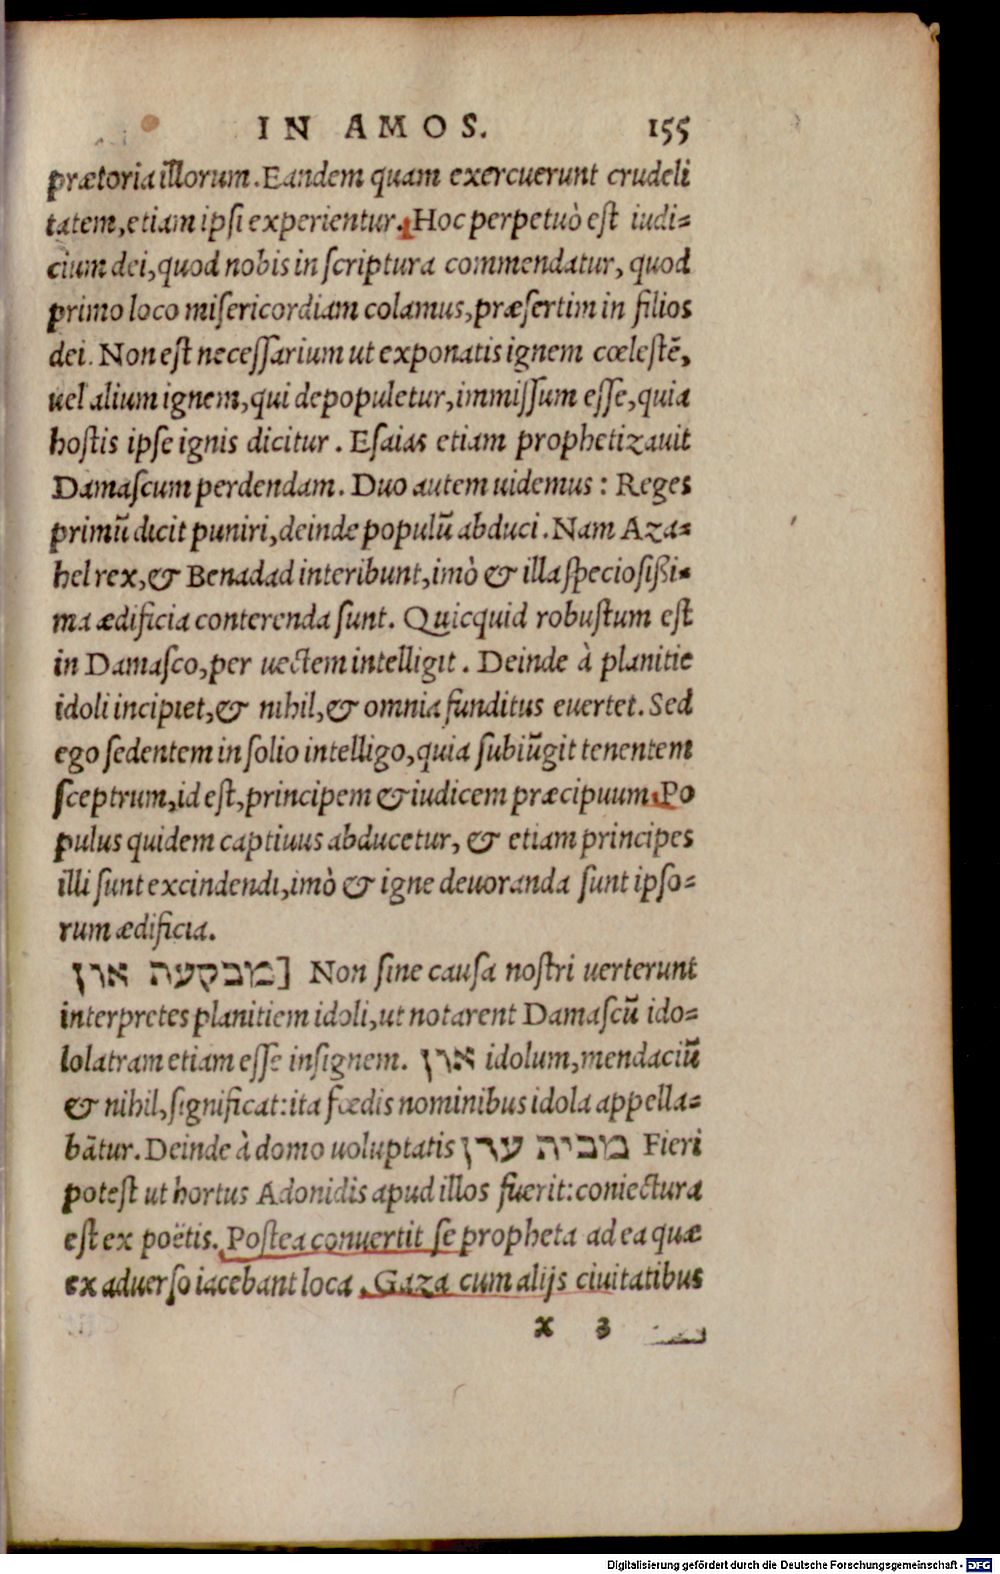 IN AMOS. 155
prætoria illorum. Eandem quam exercuerunt crudeli
tatem, etiam ipsi experientur. Hoc perpetuò est iudi-
cium dei, quod nobis in scriptura commendatur, quod
primo loco misericordiam colamus, præsertim in filios
dei. Non est necessarium ut exponatis ignem cœlestē,
uel alium ignem, qui depopuletur, immissum esse, quia
hostis ipse ignis dicitur. Esaias etiam prophetizauit
Damascum perdendam. Duo autem uidemus: Reges
primū dicit puniri, deinde populū abduci. Nam Aza-
hel rex, & Benadad interibunt, imò & illa speciosißi-
ma ædificia conterenda sunt. Quicquid robustum est
in Damasco, per uectem intelligit. Deinde à planitie
idoli incipiet, & nihil, & omnia funditus euertet. Sed
ego sedentem in solio intelligo, quia subiūgit tenentem
sceptrum, id est, principem & iudicem præcipuum. Po
pulus quidem captiuus abducetur, & etiam principes
illi sunt excindendi, imò & igne deuoranda sunt ipso-
rum ædificia.
מבקעה און] Non sine causa nostri uerterunt
interpretes planitiem idoli, ut notarent Damascū ido-
lolatram etiam esse insignem. און idolum, mendaciū
& nihil, significat: ita fœdis nominibus idola appella-
bātur. Deinde à domo uoluptatis מביה ערן Fieri
potest ut hortus Adonidis apud illos fuerit: coniectura
est ex poëtis. Postea conuertit se propheta ad ea quæ
ex aduerso iacebant loca. Gaza cum alijs ciuitatibus
x 3
Digitalisierung gefördert durch die Deutsche Forschungsgemeinschaft - DFG